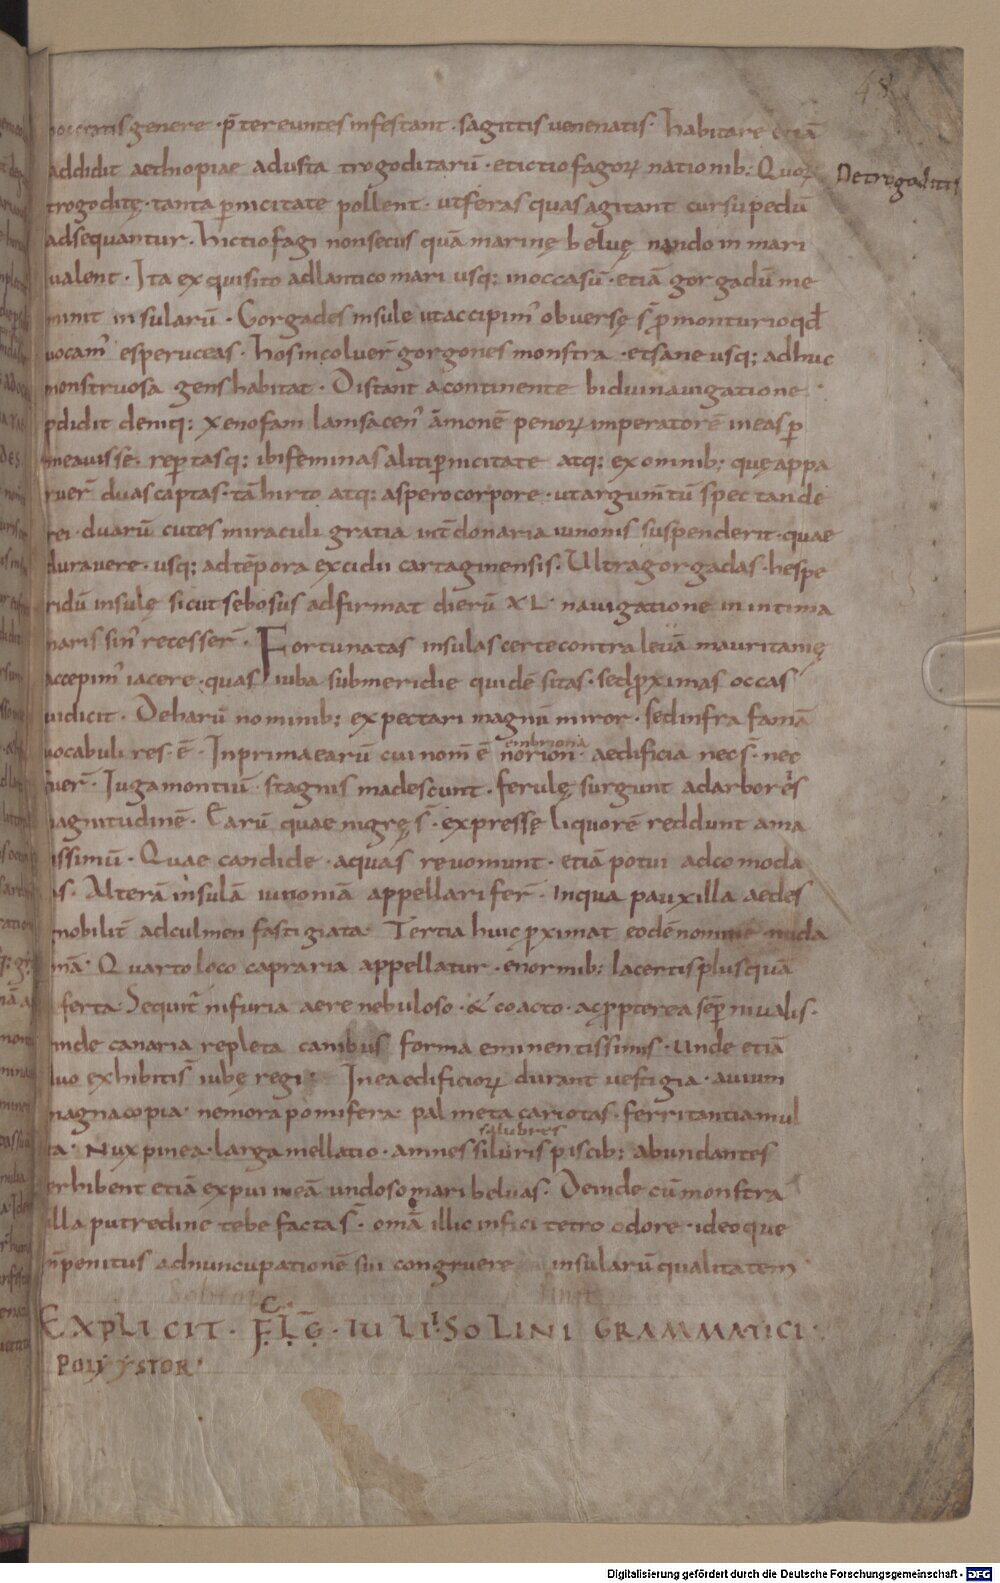 48
genere · p̄tereuntes infestant · sagittis venenatis · habitare etiā
addidit aethiopiae adusta trogoditarū · et ictiofagoꝝ nationib; Quoꝝ
De trogoditis
trogoditę · tanta ꝑnicitate pollent · ut feras quas agitant cursu pedū
adsequantur · hictiofagi non secus quā marinę beluę nando in mari
valent · Ita exquisito adlantico mari usq; in occasū · etiā gorgadū me
minit insularū · Gorgades insule ut accipim᾽ obversę s̄ ꝓmonturio qđ
vocam᾽ esperuceas · hos incoluer̄ gorgones monstra · et sane usq; ad huc
monstruosa gens habitat · Distant a continente bidui navigatione ·
pdidit deniq; xenofam lamsacen᾽ āmonē penoꝝ imperatorē in eas ꝑ
meavisse · reꝑtasq; ibi feminas aliti ꝑnicitate atq; ex omnib; quę appa
ruer̄ duas captas · tā hirto atq; aspero corpore · ut argum̄tū spectande
rei · duarū cutes miraculi gratia int̄ donaria iunonis suspenderit · quae
duravere · usq; ad tēpora excidii cartaginensis · Ultra gorgadas · hespe
ridū insulę sicut sebosus adfirmat dierū XL · navigatione in intima
maris sin᾽ recesser̄ · Fortunatas insulas certe contra levā mauritanię
accepim᾽ iacere · quas iuba sub meridie quidē sitas · sed ꝓximas occas
vidicit · De harū nominib; expectari magnū miror · sed infra famā
vocabuli res · ē · In prima earū cui nom̄ ē norion · aedificia nec s̄ · nec
embriona
fuer̄ · Iuga montiū stagnis madescunt · ferulę surgunt ad arboris
magnitudinē · Earū quae nigrę s̄ · expressę liquorē reddunt ama
issimū · Quae candide · aquas revomunt · etiā potui adcomoda
as · Alterā insulā iunoniā appellari fer̄ · In qua pauxilla aedes
ignobilit̄ ad culmen fastigiata · Tertia huic ꝓximat eodē nomine nuda
omā · Quarto loco capraria appellatur · enormib; lacertis plus quā
referta · Sequit᾽ nifuria aere nebuloso · & coacto · ac ꝓpterea semꝑ nivalis ·
inde canaria repleta canibus forma eminentissimis · unde etiā
duo exhibiti s̄ iubę regi : In ea edificioꝝ durant vestigia · avium
magna copia · nemora pomifera · palmeta cariotas · ferritantia mul
ta · Nux pinea · larga mellatio · amnes siluris piscib; abundantes
salubres
erhibent etiā expui in eā undoso mari beluas · Deinde cū monstra
illa putredine tebefacta s̄ · omā illic infici tetro odore · ideoque
n̄ penitus ad nuncupationē sui congruere insularū qualitatem ·
EXPLICIT · F̄L̄Ḡ · IULI · SOLINI GRAMMATICI ·
POLYYSTOR ·
Digitalisierung gefördert durch die Deutsche Forschungsgemeinschaft - DFG